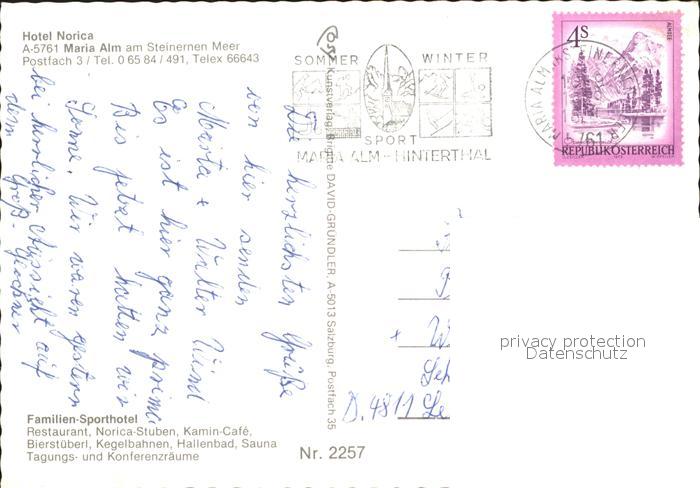 Hotel Norica
A-5761 Maria Alm am Steinernen Meer
Postfach 3 / Tel. 0 65 84 / 491, Telex 66643
SOMMER WINTER
SPORT
MARIA ALM - HINTERTHAL
4 S
ALMSEE
REPUBLIK ÖSTERREICH
MARIA ALM
5761
Die herzlichsten Grüße
von hier senden
Marta + Walter Wünd
Es ist hier ganz prima
Bis jetzt hatten wir
Sonne. Wir waren gestern
bei herrlicher Aussicht auf
dem
Kunstverlag Brigitte DAVID-GRÜNDLER, A-5013 Salzburg, Postfach 35
+ W
D. 4811 Le
privacy protection
Datenschutz
Familien-Sporthotel
Restaurant, Norica-Stuben, Kamin-Café,
Bierstüberl, Kegelbahnen, Hallenbad, Sauna
Tagungs- und Konferenzräume
Nr. 2257